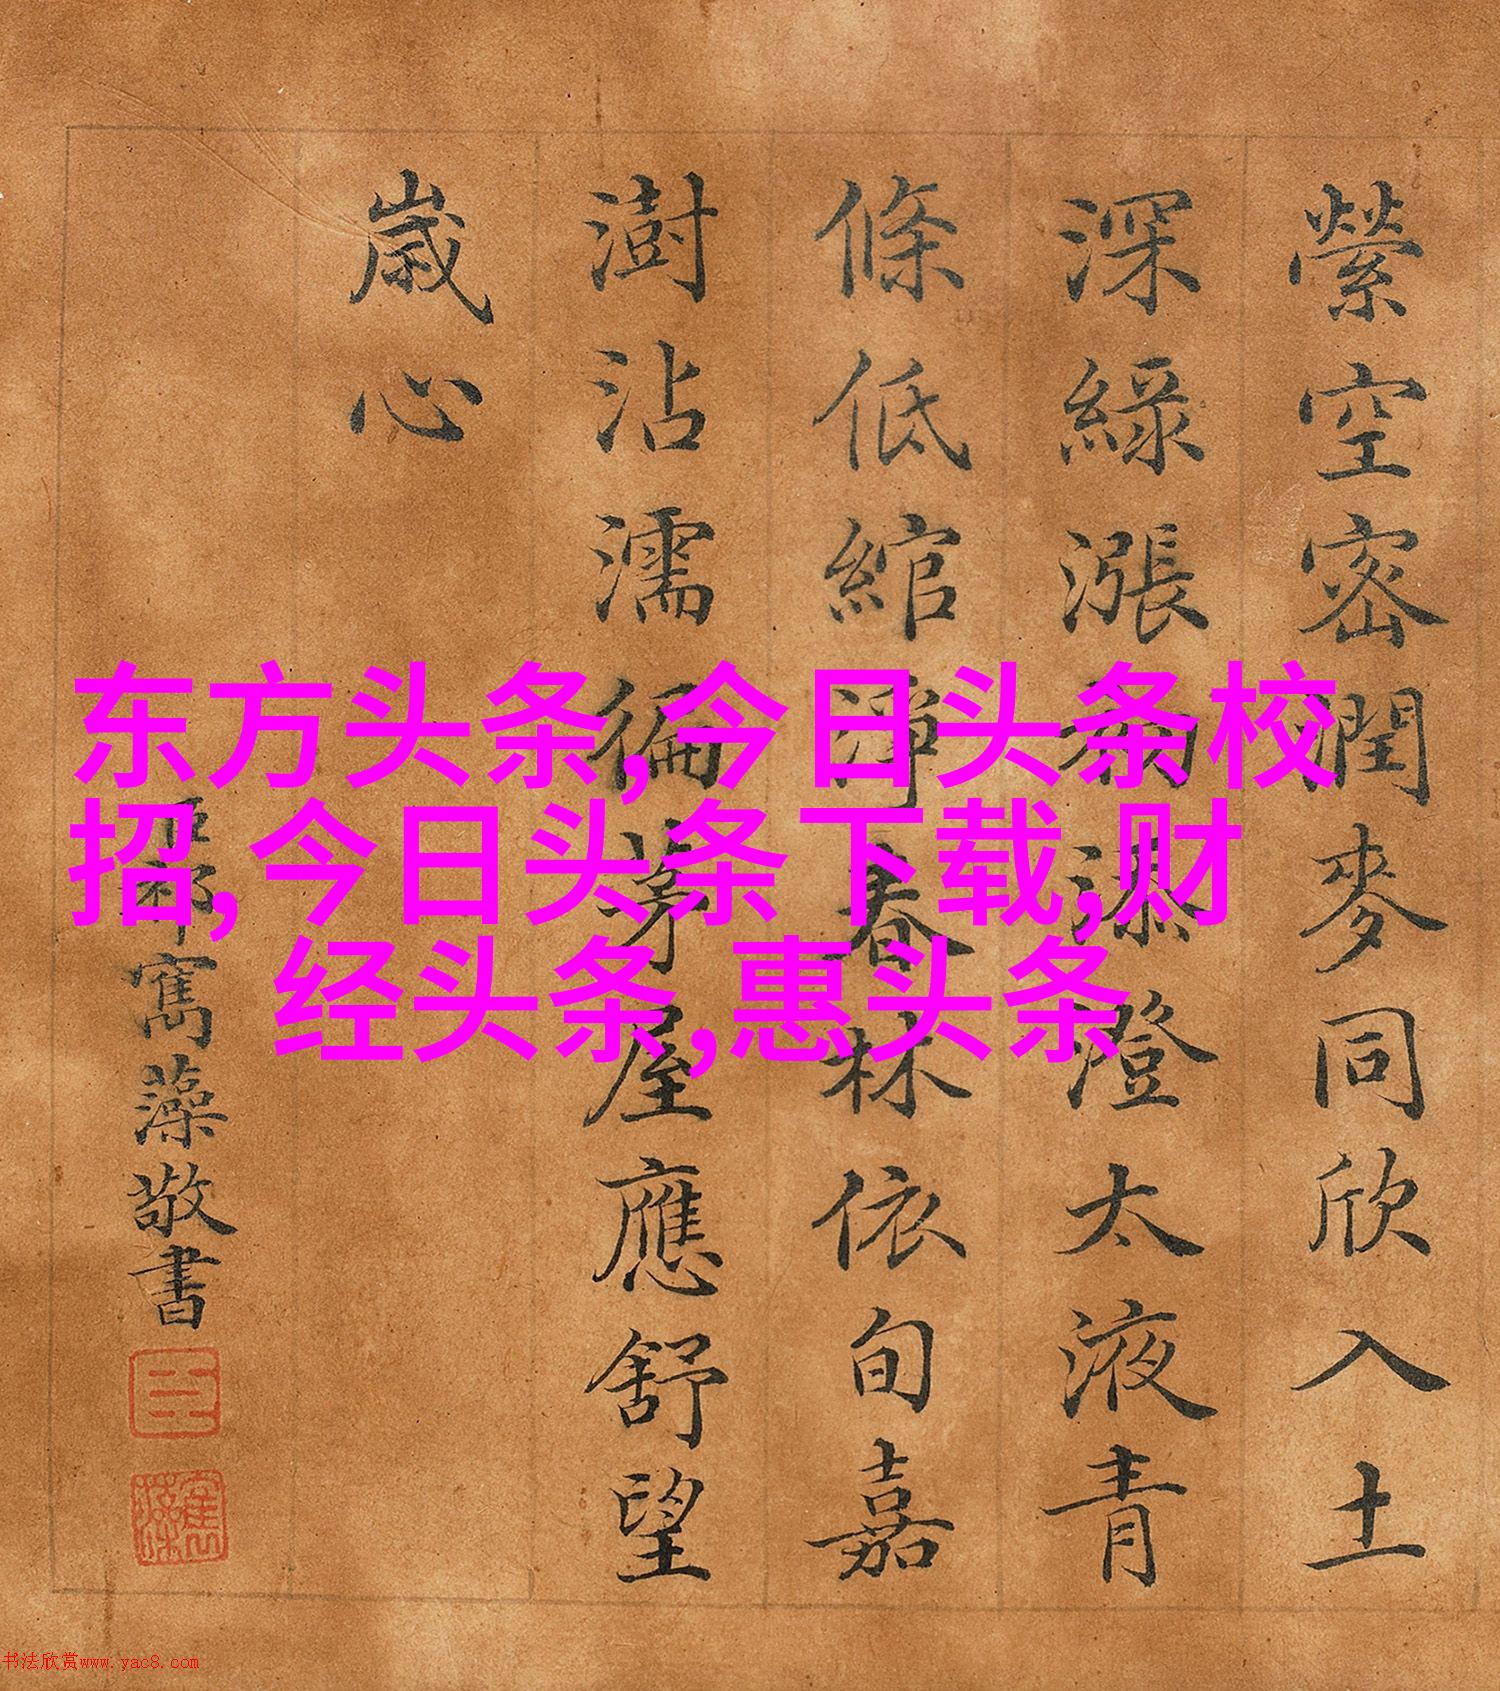 縈空密潤麥同欣入土
深綠漲初添澄太液青
條低綰淨春林依旬嘉
澍沾濡徧茅屋應舒望
歲心
臣祁寯藻敬書
东方头条,今日头条校
招,今日头条下载,财
经头条,惠头条
书法欣赏www.yac8.com